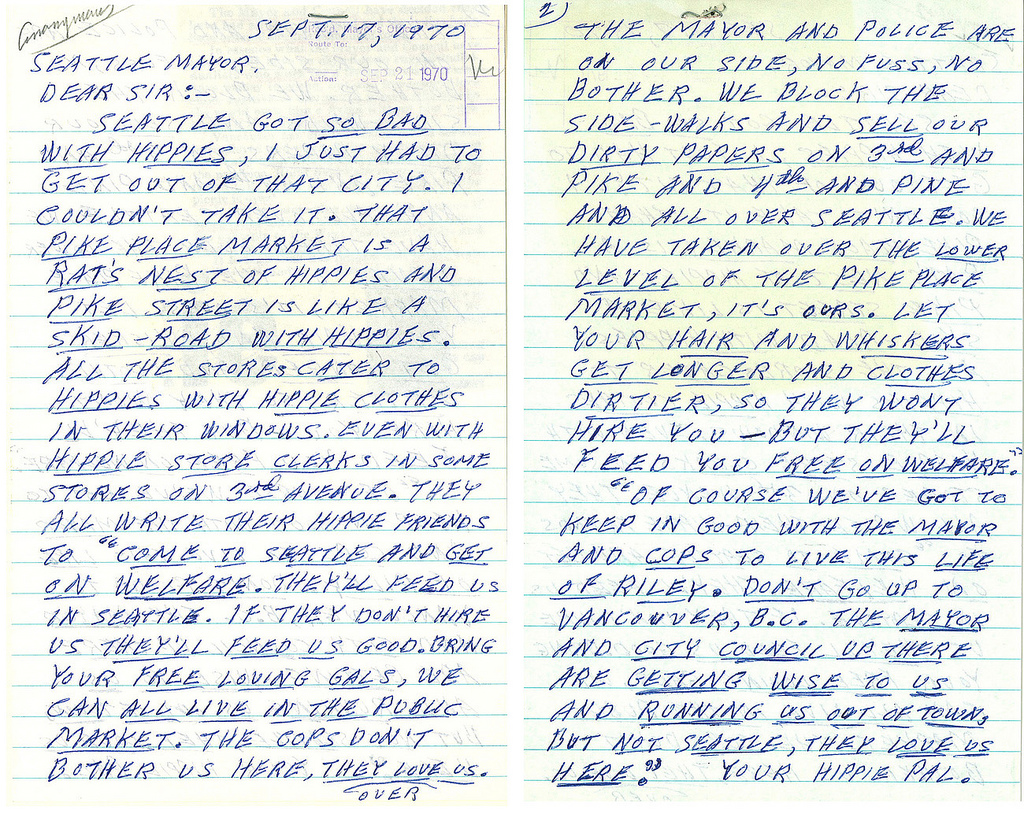 anonymous
SEPT. 17, 1970
Route To:
Action: SEP 21 1970
SEATTLE MAYOR.
DEAR SIR:-
SEATTLE GOT SO BAD
WITH HIPPIES, I JUST HAD TO
GET OUT OF THAT CITY. I
COULDN'T TAKE IT. THAT
PIKE PLACE MARKET IS A
RAT'S NEST OF HIPPIES AND
PIKE STREET IS LIKE A
SKID-ROAD WITH HIPPIES.
ALL THE STORES CATER TO
HIPPIES WITH HIPPIE CLOTHES
IN THEIR WINDOWS. EVEN WITH
HIPPIE STORE CLERKS IN SOME
STORES ON 3rd AVENUE. THEY
ALL WRITE THEIR HIPPIE FRIENDS
TO "COME TO SEATTLE AND GET
ON WELFARE. THEY'LL FEED US
IN SEATTLE. IF THEY DON'T HIRE
US THEY'LL FEED US GOOD. BRING
YOUR FREE LOVING GALS, WE
CAN ALL LIVE IN THE PUBLIC
MARKET. THE COPS DON'T
BOTHER US HERE, THEY LOVE US.
OVER
2)
THE MAYOR AND POLICE ARE
ON OUR SIDE, NO FUSS, NO
BOTHER. WE BLOCK THE
SIDE-WALKS AND SELL OUR
DIRTY PAPERS ON 3rd AND
PIKE AND 4th AND PINE
AND ALL OVER SEATTLE. WE
HAVE TAKEN OVER THE LOWER
LEVEL OF THE PIKE PLACE
MARKET, IT'S OURS. LET
YOUR HAIR AND WHISKERS
GET LONGER AND CLOTHES
DIRTIER, SO THEY WONT
HIRE YOU - BUT THEY'LL
FEED YOU FREE ON WELFARE."
"OF COURSE WE'VE GOT TO
KEEP IN GOOD WITH THE MAYOR
AND COPS TO LIVE THIS LIFE
OF RILEY. DON'T GO UP TO
VANCOUVER, B.C. THE MAYOR
AND CITY COUNCIL UP THERE
ARE GETTING WISE TO US
AND RUNNING US OUT OF TOWN,
BUT NOT SEATTLE, THEY LOVE US
HERE." YOUR HIPPIE PAL.